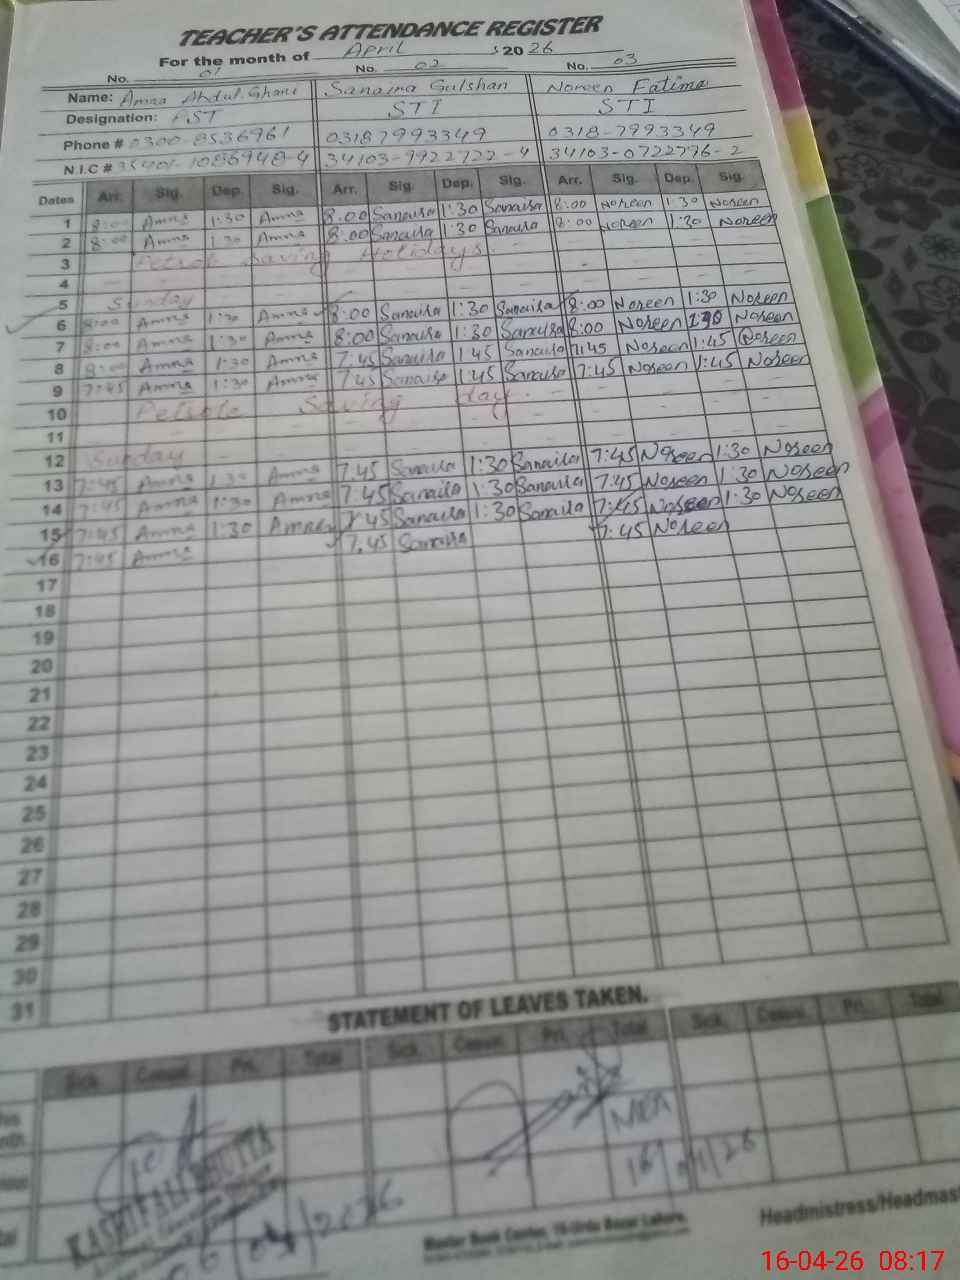 TEACHER'S ATTENDANCE REGISTER
For the month of April 2026
No. 01 No. 02 No. 03
Name: Amna Abdul Ghani Sanaira Gulshan Noreen Fatima
Designation: PST STI STI
Phone # 0300-8536961 03187993349 0318-7993349
N.I.C # 35401-1086948-4 34103-9922722-4 34103-0722776-2
Dates Arr. Sig. Dep. Sig. Arr. Sig. Dep. Sig. Arr. Sig. Dep. Sig.
1 8:00 Amna 1:30 Amna 8:00 Sanaira 1:30 Sanaira 8:00 Noreen 1:30 Noreen
2 8:00 Amna 1:30 Amna 8:00 Sanaira 1:30 Sanaira 8:00 Noreen 1:30 Noreen
3 Petrol Saving Holidays.
4
5 Sunday
6 8:00 Amna 1:30 Amna 8:00 Sanaira 1:30 Sanaira 8:00 Noreen 1:30 Noreen
7 8:00 Amna 1:30 Amna 8:00 Sanaira 1:30 Sanaira 8:00 Noreen 1:30 Noreen
8 8:00 Amna 1:30 Amna 7:45 Sanaira 1:45 Sanaira 7:45 Noreen 1:45 Noreen
9 7:45 Amna 1:30 Amna 7:45 Sanaira 1:45 Sanaira 7:45 Noreen 1:45 Noreen
10 Petrole Saving day.
11
12 Sunday
13 7:45 Amna 1:30 Amna 7:45 Sanaira 1:30 Sanaira 7:45 Noreen 1:30 Noreen
14 7:45 Amna 1:30 Amna 7:45 Sanaira 1:30 Sanaira 7:45 Noreen 1:30 Noreen
15 7:45 Amna 1:30 Amna 7:45 Sanaira 1:30 Sanaira 7:45 Noreen 1:30 Noreen
16 7:45 Amna 7:45 Sanaira 7:45 Noreen
17
18
19
20
21
22
23
24
25
26
27
28
29
30
31
STATEMENT OF LEAVES TAKEN.
Sick. Casual. Pri. Total Sick. Casual. Pri. Total Sick. Casual. Pri. Total
MEA
16/04/26
KASHIF ALI BHUTTA
Master Book Center, 10-Urdu Bazar Lahore.
Headmistress/Headmast
16-04-26 08:17